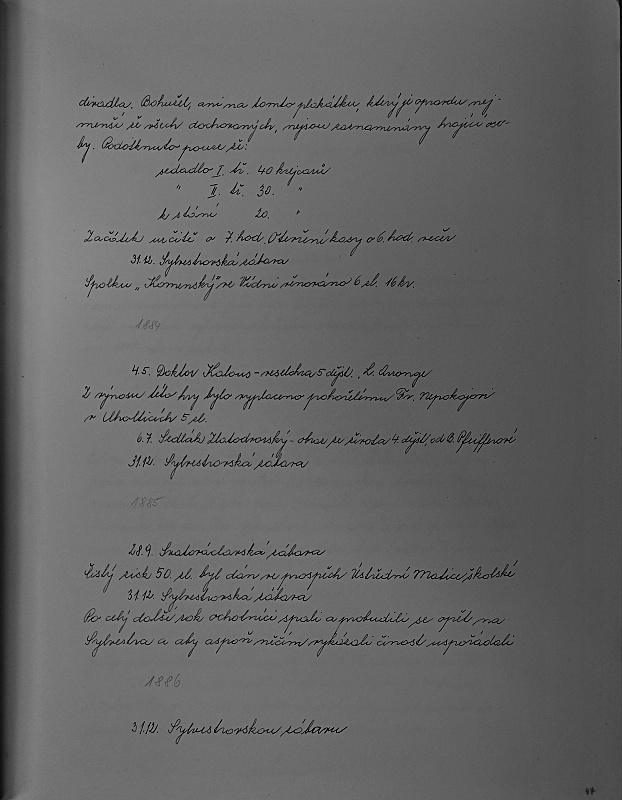 divadla. Bohužel, ani na tomto plakátku, který je opravdu nej-
menší ze všech dochovaných, nejsou zaznamenány hrající oso-
by. Podotknuto pouze že:
sedadlo I. tř. 40 krejcarů
" II. tř. 30. "
k stání 20. "
Začátek určitě o 7. hod. Otevření kasy o 6. hod. večer
31.12. Sylvestrovská zábava
Spolku „Komenský" ve Vídni věnováno 6 zl. 16 kr.
1884
4.5. Doktor Kalous - veselohra 5 dějst. L. Arronge
Z výnosu této hry bylo vyplaceno pohořelému Fr. Nepokojovi
v Uholticích 5 zl.
6.7. Sedlák Zlatodvorský - obraz ze života 4 dějst. od B. Pfeifferové
31.12. Sylvestrovská zábava
1885
28.9. Svatováclavská zábava
Čistý zisk 50. zl. byl dán ve prospěch Ústřední Matice školské
31.12 Sylvestrovská zábava
Po celý další rok ochotníci spali a probudili se opět na
Sylvestra a aby aspoň něčím vykázali činost uspořádali
1886
31.12. Sylvestrovskou zábavu